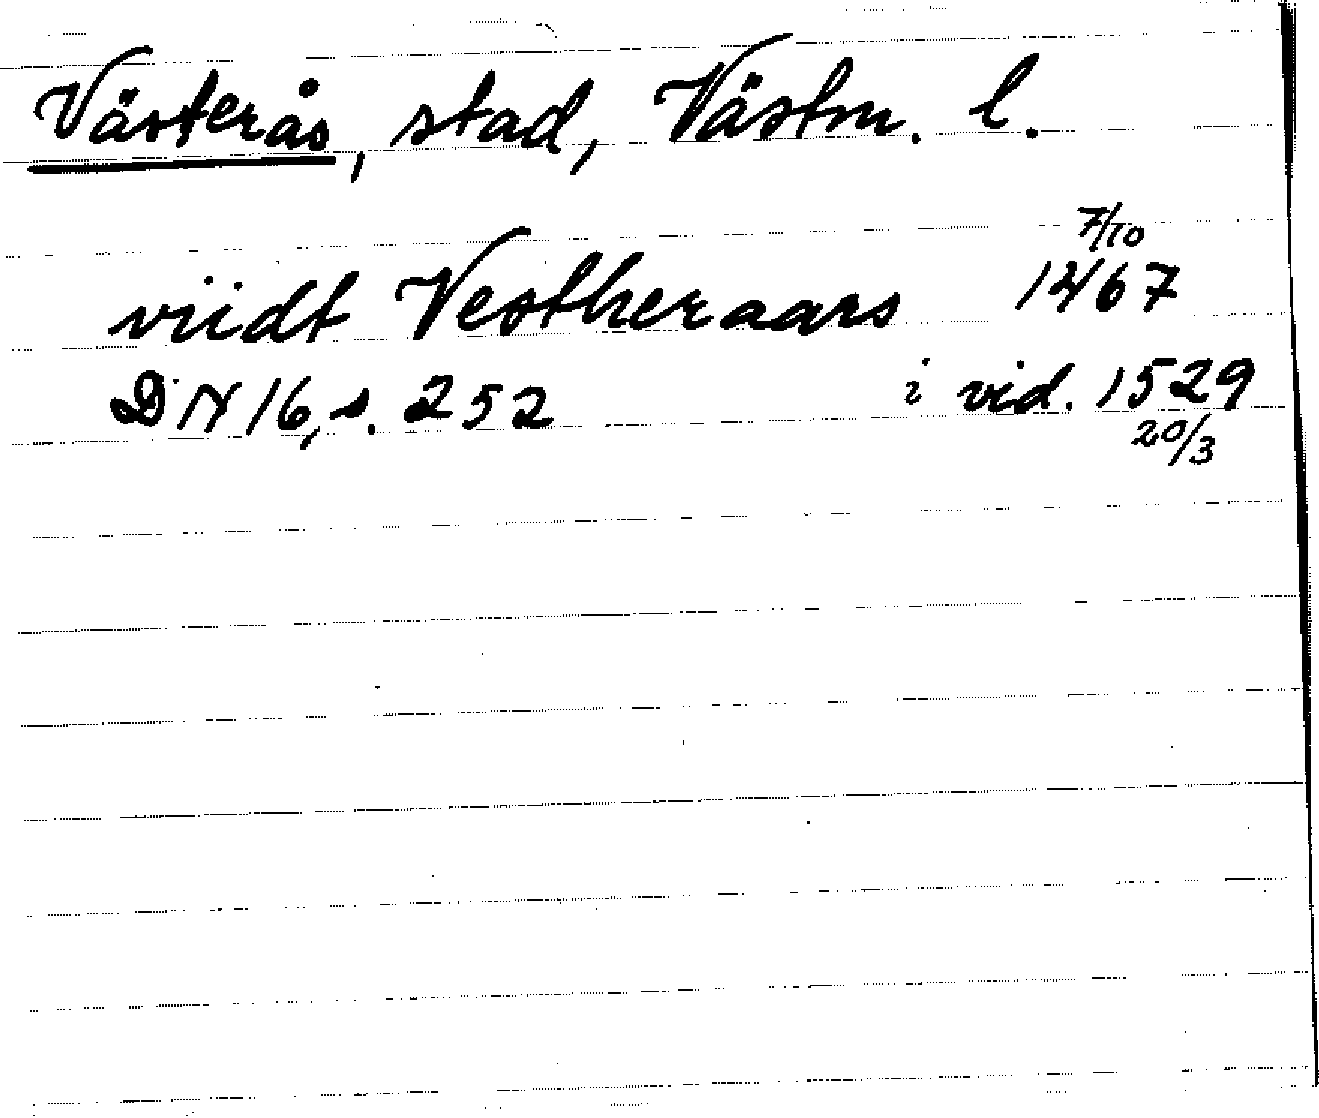 Västerås, stad, Västm. l.
7/10
viidt Vestheraars 1467
DN 16, s. 252 i vid. 1529
20/3